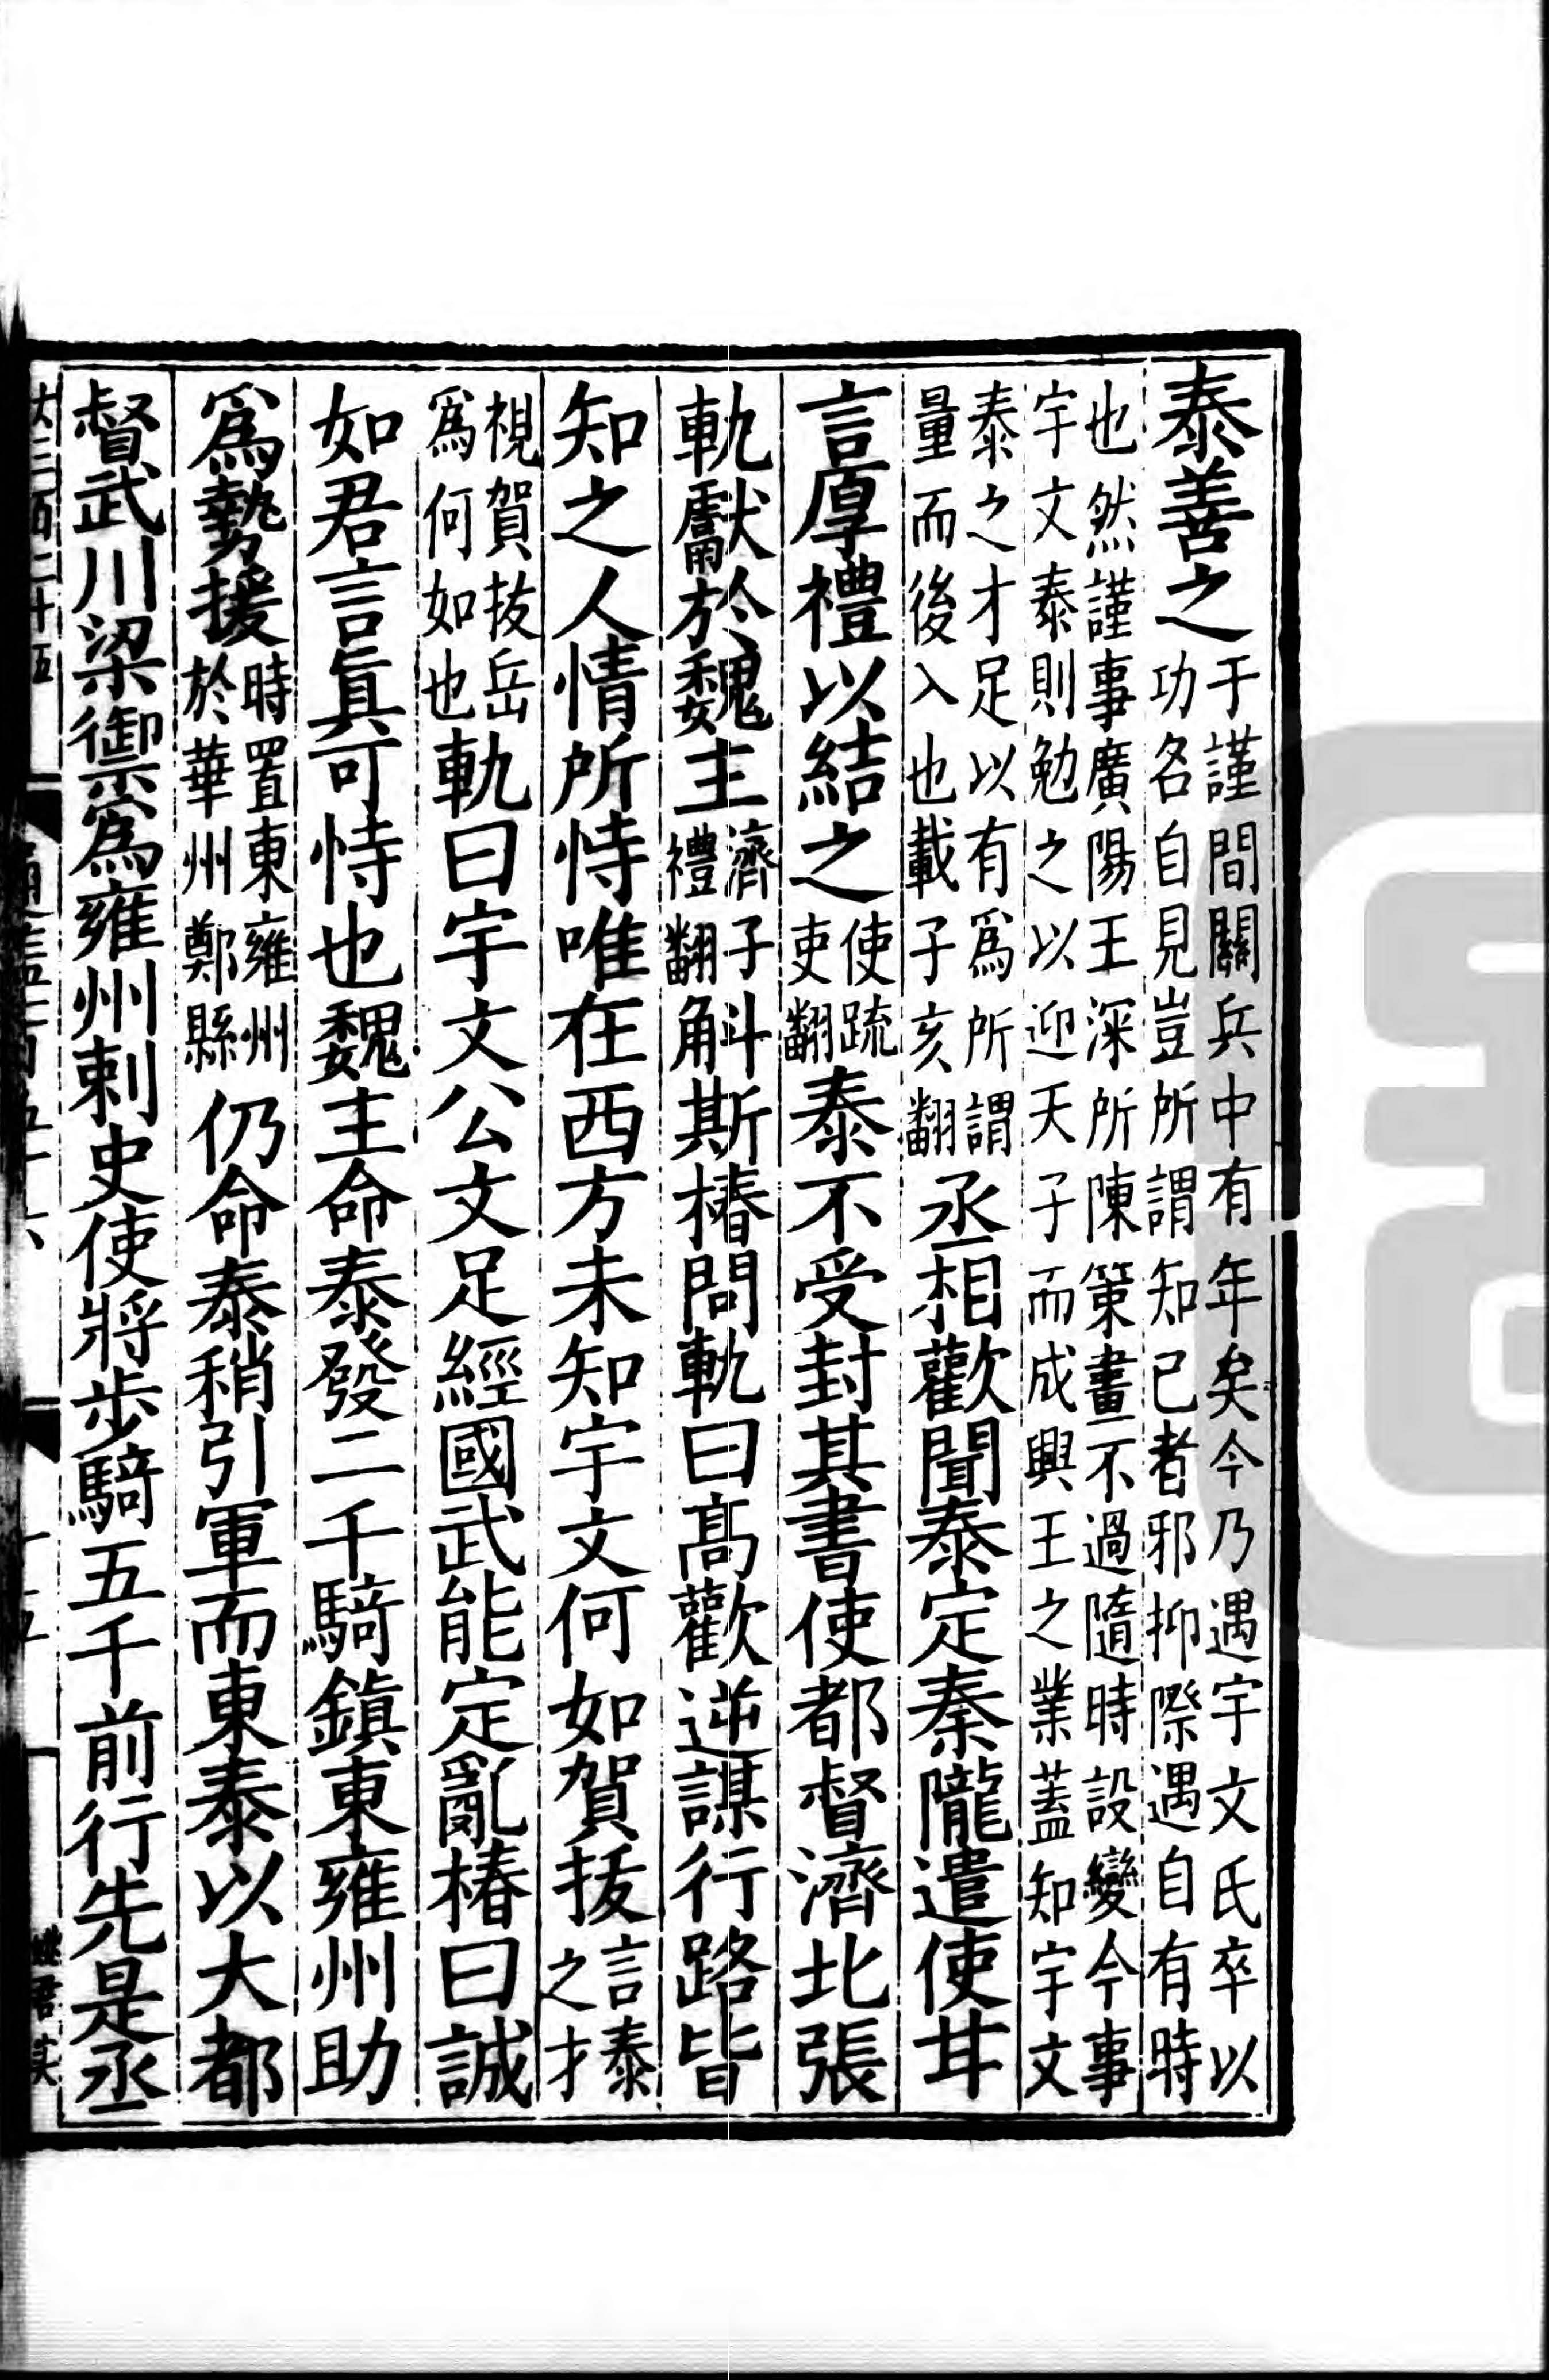 泰善之于謹間關兵中有年矣今乃遇宇文氏卒以功名自見豈所謂知已者邪抑際遇自有時
也然謹事廣陽王深所陳策畫不過隨時設變今事宇文泰則勉之以迎天子而成興王之業蓋知宇文
泰之才足以有爲所謂量而後入也載子亥翻丞相歡聞泰定秦隴遣使甘
言厚禮以結之使疏吏翻泰不受封其書使都督濟北張
軌獻於魏主濟子禮翻斛斯椿問軌曰高歡逆謀行路皆
知之人情所恃唯在西方未知宇文何如賀拔言泰之才
視賀拔岳爲何如也軌曰宇文公文足經國武能定亂椿曰誠
如君言眞可恃也魏主命泰發二千騎鎭東雍州助
爲勢援時置東雍州於華州鄭縣仍命泰稍引軍而東泰以大都
督武川梁禦爲雍州刺史使將步騎五千前行先是丞